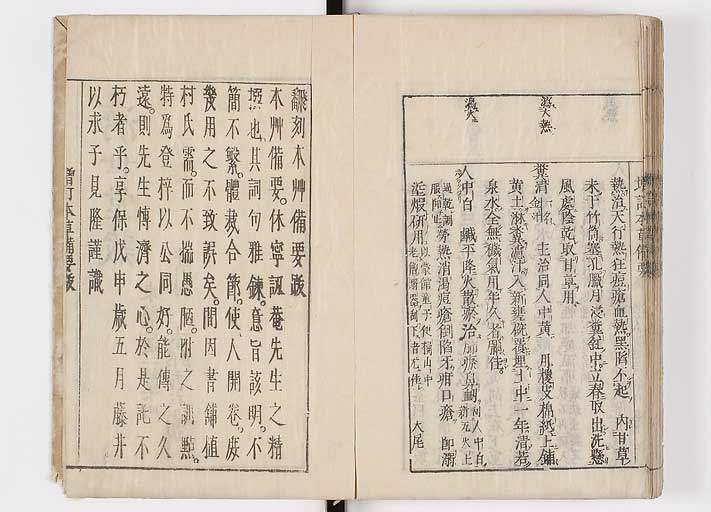 増訂本草備要
熱治天行熱狂痘瘡血熱黑陷不起 內甘草
末于竹筒塞孔臘月浸糞缸中立春取出洗懸
風處陰乾取甘草用
瀉大熱
糞清 一名金汁 主治同人中黄 用椶皮棉紙上鋪
黄土淋糞濾汁入新甕碗覆埋土中一年清若
泉水全無穢氣用年久者彌佳
瀉火
人中白 鹹平降火散瘀治肺瘀鼻衄
過乾調
服即止 勞熱消渇痘瘡倒陷牙疳口瘡 即溺
以蒙館童子便
山中
老僧溺器刮下者尤佳 大尾
飜刻本艸備要跋
本艸備要休寧訒菴先生之精
撰也其詞句雅鍊意旨該明不
簡不繁體裁合節使人開卷庶
幾用之不致誤矣間因書鋪植
村氏需而不揣愚陋附之訓點
特爲登梓以公同好能傳之久
遠則先生博濟之心於是託不
朽者乎享保戊申歲五月藤井
以求子見隆謹識
増訂本草備要跋